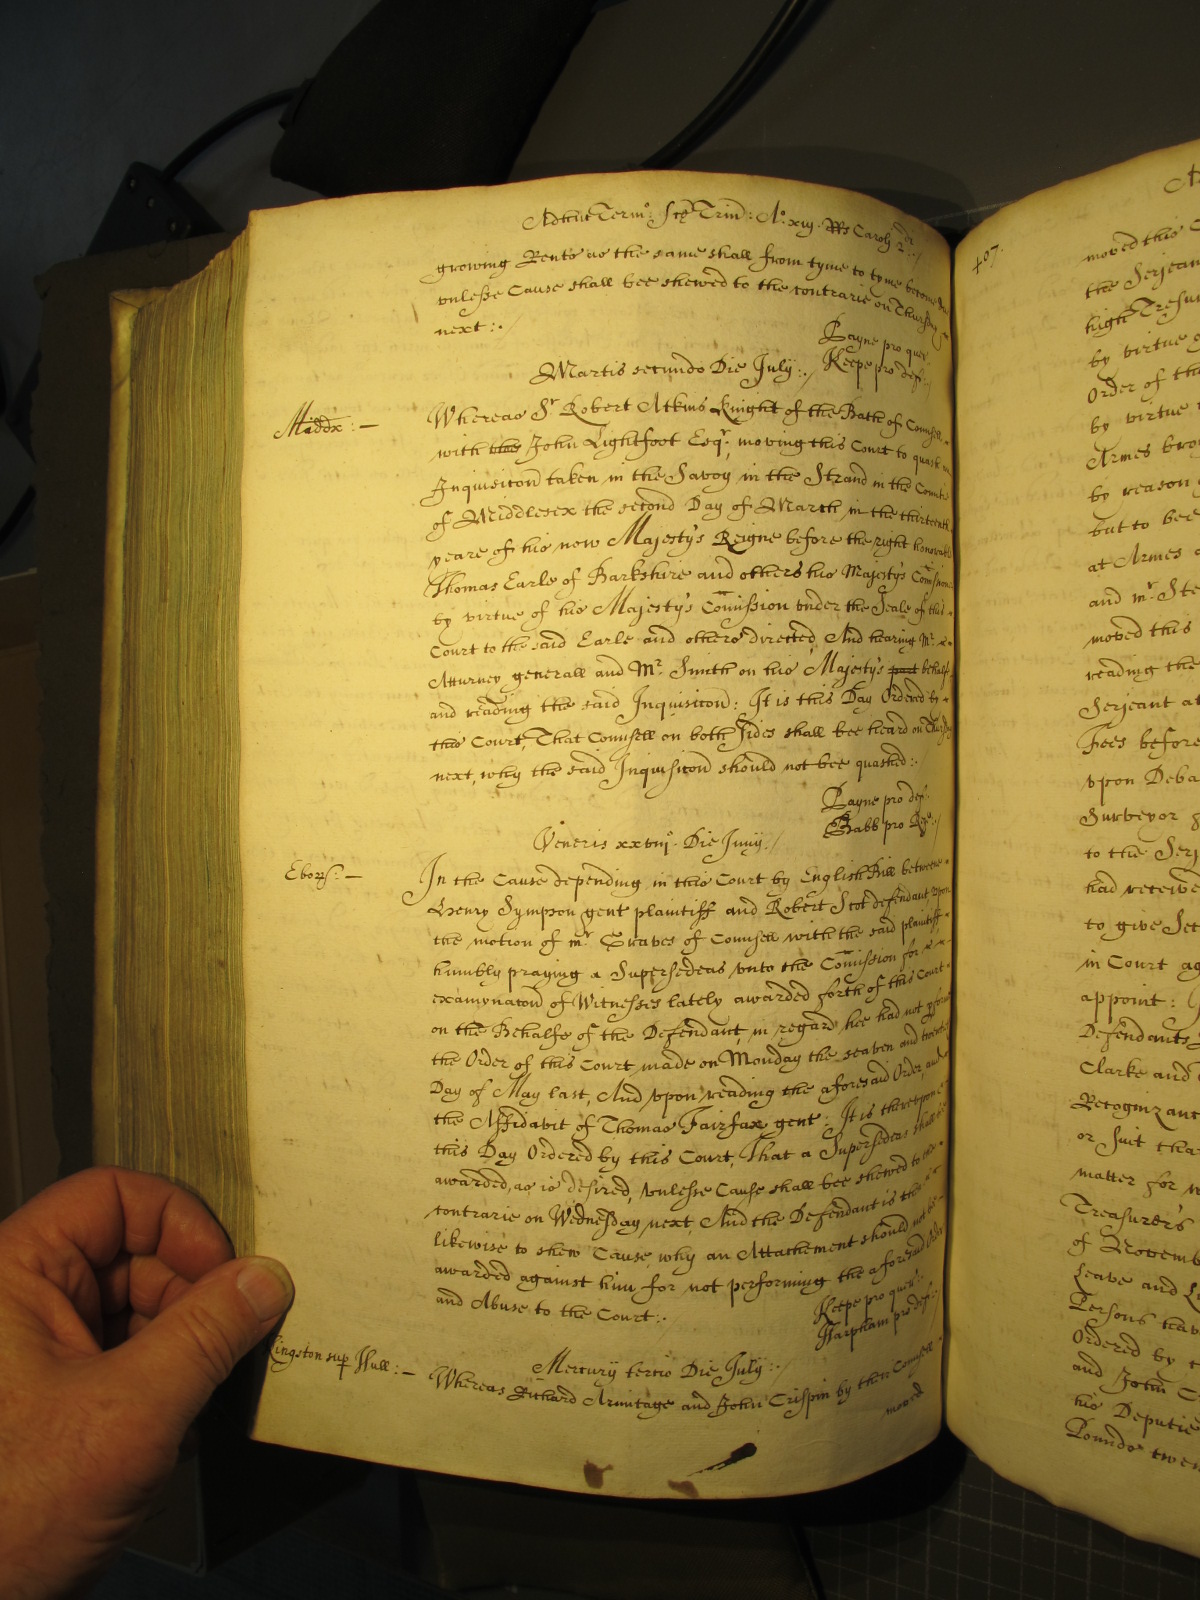 Adhuc Termo: Sce Trin: Ao: xiij. Rs Caroli 2di
growing Rents as the same shall from tyme to tyme become due
vnlesse Cause shall bee shewed to the contrarie on Thursday
next:.
Payne pro quer
Martis secundo Die July:. Keepe pro def:
Middx: — Whereas Sr Robert Atkins Knight of the Bath of Counsell
with John Lightfoot Esqr, moving this Court to quash an
Inquisicon taken in the Savoy in the Strand in the Countie
of Middlesex the second Day of March in the thirteenth
yeare of his now Majesty's Reigne before the right honorable
Thomas Earle of Barkshire and others his Majesty's Comission
by virtue of his Majesty's Comission vnder the Seale of this
Court to the said Earle and others directed, And hearing Mr
Atturney generall and Mr Smith on his Majesty's part behalfe
and reading the said Inquisicon: It is this Day Ordered by
this Court, That Counsell on both sides shall bee heard on Thursday
next, why the said Inquisicon should not bee quashed:.
Payne pro def:
Babb pro Rege:
Veneris xxviijo Die Junij
Eborr: — In the Cause depending in this Court by English Bill betweene
Henry Sympson gent plaintiff and Robert Scot defendant, vpon
the motion of mr Graves of Counsell with the said plaintiff
humbly praying a Supersedeas vnto the Comission for
examynacon of Witnesses lately awarded forth of this Court
on the Behalfe of the Defendant, in regard hee had not pformed
the Order of this Court made on Monday the seaven and twentieth
Day of May last, And vpon reading the aforesaid Order, and
the Affidavit of Thomas Fairfax gent: It is therevpon
this Day Ordered by this Court, That a Supersedeas shall bee
awarded, as is desired, vnlesse Cause shall bee shewed to the
contrarie on Wednesday next, And the Defendant is then
likewise to shew Cause, why an Attachement should not be
awarded against him for not performing the aforesaid Order
and Abuse to the Court:.
Keepe pro quer:
Harpham pro def:
Mercury tertio Die July:.
Kingston sup Hull: — Whereas Richard Armitage and John Crispin by their Counsell
moved
407.
moved this
the Serjean
high Tresu
by virtue
Order of th
by virtue
Armes bro
by reason
but to bee
at Armes
and mr Ste
moved this
reading the
Serjeant at
Fees before
vpon Deba
Surveyor
to the Serj
had receive
to give Sec
in Court ag
appoint:
Defendants
Clarke and
Recognizanc
or Suit tha
matter for
Treasurer's
of Novemb
Leave and
Persons
Ordered by
and John
his Deputie
Pounds twen